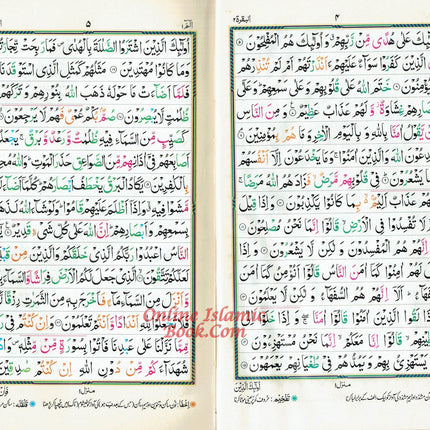 البقرة ٢
۴
عَلٰى هُدًى مِّنْ رَّبِّهِمْ وَاُولٰٓئِكَ هُمُ الْمُفْلِحُوْنَ
الَّذِيْنَ كَفَرُوْا سَوَآءٌ عَلَيْهِمْ ءَاَنْذَرْتَهُمْ اَمْ لَمْ تُنْذِرْهُمْ
يُؤْمِنُوْنَ خَتَمَ اللّٰهُ عَلٰى قُلُوْبِهِمْ وَعَلٰى سَمْعِهِمْ وَعَلٰٓى
غِشَاوَةٌ وَّلَهُمْ عَذَابٌ عَظِيْمٌ وَمِنَ النَّاسِ
يَّقُوْلُ اٰمَنَّا بِاللّٰهِ وَبِالْيَوْمِ الْاٰخِرِ وَمَا هُمْ بِمُؤْمِنِيْنَ
اللّٰهَ وَالَّذِيْنَ اٰمَنُوْا وَمَا يَخْدَعُوْنَ اِلَّآ اَنْفُسَهُمْ
يَشْعُرُوْنَ فِيْ قُلُوْبِهِمْ مَّرَضٌ فَزَادَهُمُ اللّٰهُ مَرَضًا
عَذَابٌ اَلِيْمٌ بِمَا كَانُوْا يَكْذِبُوْنَ وَاِذَا قِيْلَ
لَا تُفْسِدُوْا فِي الْاَرْضِ قَالُوْٓا اِنَّمَا نَحْنُ مُصْلِحُوْنَ
اِنَّهُمْ هُمُ الْمُفْسِدُوْنَ وَلٰكِنْ لَّا يَشْعُرُوْنَ وَاِذَا
لَهُمْ اٰمِنُوْا كَمَآ اٰمَنَ النَّاسُ قَالُوْٓا اَنُؤْمِنُ كَمَآ
السُّفَهَآءُ اَلَآ اِنَّهُمْ هُمُ السُّفَهَآءُ وَلٰكِنْ لَّا يَعْلَمُوْنَ
لَقُوا الَّذِيْنَ اٰمَنُوْا قَالُوْٓا اٰمَنَّا وَاِذَا خَلَوْا اِلٰى
قَالُوْٓا اِنَّا مَعَكُمْ اِنَّمَا نَحْنُ مُسْتَهْزِءُوْنَ
يَسْتَهْزِئُ بِهِمْ وَيَمُدُّهُمْ فِيْ طُغْيَانِهِمْ يَعْمَهُوْنَ
منزل ١
اُولٰٓئِكَ الَّذِيْنَ
الٓمّٓ ١
۵
اُولٰٓئِكَ الَّذِيْنَ اشْتَرَوُا الضَّلٰلَةَ بِالْهُدٰى فَمَا رَبِحَتْ تِّجَارَتُهُمْ
وَمَا كَانُوْا مُهْتَدِيْنَ مَثَلُهُمْ كَمَثَلِ الَّذِى اسْتَوْقَدَ نَارًا
فَلَمَّآ اَضَآءَتْ مَا حَوْلَهٗ ذَهَبَ اللّٰهُ بِنُوْرِهِمْ وَتَرَكَهُمْ فِيْ
ظُلُمٰتٍ لَّا يُبْصِرُوْنَ صُمٌّۢ بُكْمٌ عُمْيٌ فَهُمْ لَا يَرْجِعُوْنَ
كَصَيِّبٍ مِّنَ السَّمَآءِ فِيْهِ ظُلُمٰتٌ وَّرَعْدٌ وَّبَرْقٌ يَجْعَلُوْنَ
اَصَابِعَهُمْ فِيْٓ اٰذَانِهِمْ مِّنَ الصَّوَاعِقِ حَذَرَ الْمَوْتِ وَاللّٰهُ
بِالْكٰفِرِيْنَ يَكَادُ الْبَرْقُ يَخْطَفُ اَبْصَارَهُمْ كُلَّمَآ اَضَآءَ
مَّشَوْا فِيْهِ وَاِذَآ اَظْلَمَ عَلَيْهِمْ قَامُوْا وَلَوْ شَآءَ اللّٰهُ لَذَهَبَ
بِسَمْعِهِمْ وَاَبْصَارِهِمْ اِنَّ اللّٰهَ عَلٰى كُلِّ شَيْءٍ قَدِيْرٌ
النَّاسُ اعْبُدُوْا رَبَّكُمُ الَّذِيْ خَلَقَكُمْ وَالَّذِيْنَ مِنْ قَبْلِكُمْ
لَعَلَّكُمْ تَتَّقُوْنَ الَّذِيْ جَعَلَ لَكُمُ الْاَرْضَ فِرَاشًا وَّالسَّمَآءَ
وَّاَنْزَلَ مِنَ السَّمَآءِ مَآءً فَاَخْرَجَ بِهٖ مِنَ الثَّمَرٰتِ رِزْقًا
فَلَا تَجْعَلُوْا لِلّٰهِ اَنْدَادًا وَّاَنْتُمْ تَعْلَمُوْنَ وَاِنْ كُنْتُمْ فِيْ
مِّمَّا نَزَّلْنَا عَلٰى عَبْدِنَا فَاْتُوْا بِسُوْرَةٍ مِّنْ مِّثْلِهٖ وَادْعُوْا
شُهَدَآءَكُمْ مِّنْ دُوْنِ اللّٰهِ اِنْ كُنْتُمْ صٰدِقِيْنَ
منزل ١
Online Islamic
Book.Com